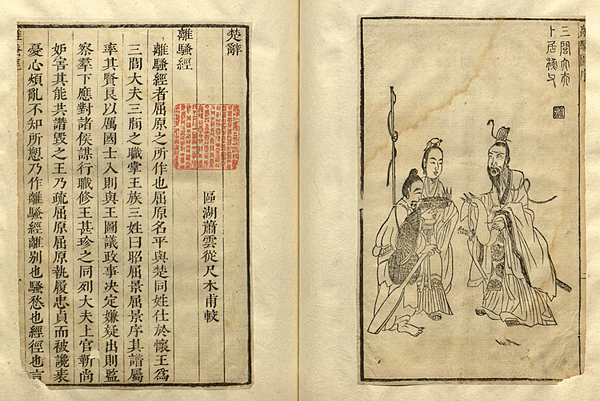 三閭大夫
卜居漁父
楚辭
離騷經
區湖蕭雲從尺木甫較
離騷經者屈原之所作也屈原名平與楚同姓仕於懷王為
三閭大夫三閭之職掌王族三姓曰昭屈景屈原序其譜屬
率其賢良以厲國士入則與王圖議政事決定嫌疑出則監
察羣下應對諸侯謀行職修王甚珍之同列大夫上官靳尚
妒害其能共譖毀之王乃疏屈原屈原執履忠貞而被讒衺
憂心煩亂不知所愬乃作離騷經離別也騷愁也經徑也言
離騷經